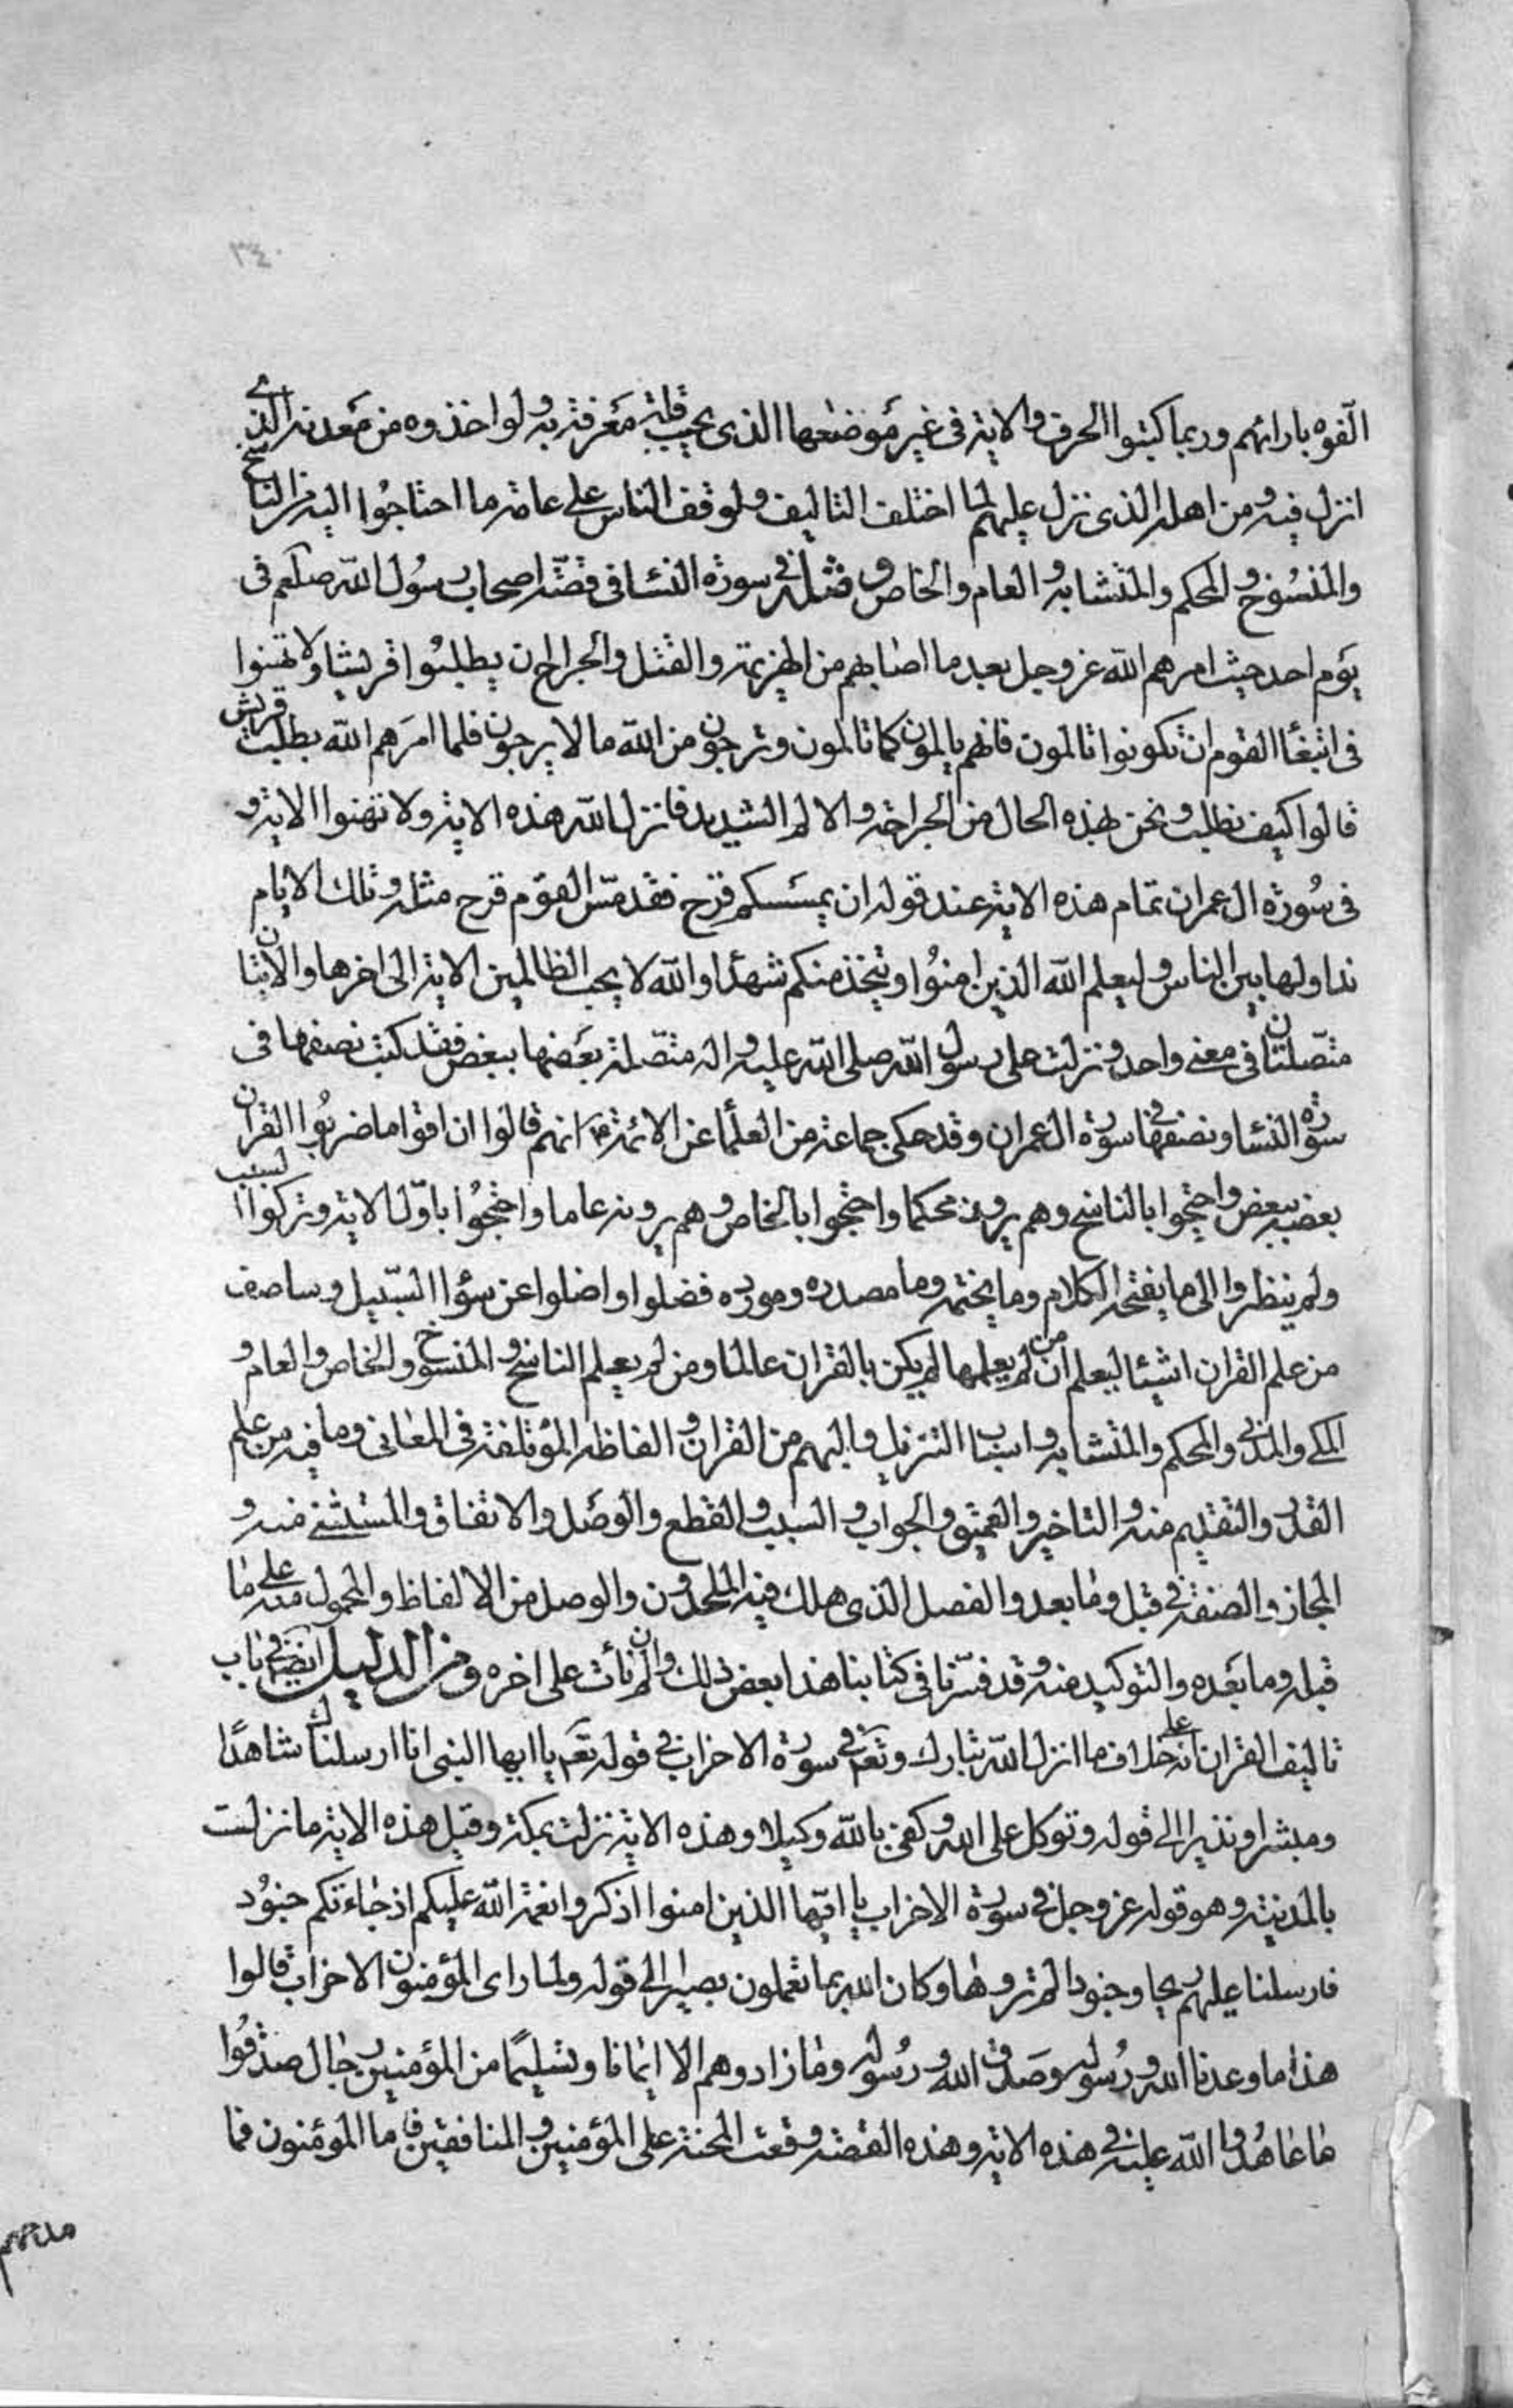 ٣٤٠
الفوه بارائهم وربما كتبوا الحرف والاية فى غير موضعها الذى يجب قلة معرفة به ولو اخذوه من معدنه الذى
انزل فيه ومن اهله الذى نزل عليهم لما اختلف التاليف ولوقف الناس على عامة ما احتاجوا اليه من الناسخ
والمنسوخ والمحكم والمتشابه والعام والخاص ومثله فى سورة النسا فى قصّة اصحاب رسول الله صلعم فى
يوم احد حيث امرهم الله عز وجل بعد ما اصابهم من الهزيمة والقتل والجراح ان يطلبوا قريشا ولا تهنوا
فى ابتغا القوم ان تكونوا تالمون فانهم يالمون كما تالمون وترجون من الله ما لا يرجون فلما امرهم الله بطلب قريش
قالوا كيف نطلب ونحن بهذه الحال من الجراحة والالم الشديد فانزل الله هذه الاية ولا تهنوا الاية و
فى سورة ال عمران تمام هذه الاية عند قوله ان يمسسكم قرح فقد مسّ القوم قرح مثله وتلك الايام
نداولها بين الناس وليعلم الله الذين امنوا ويتخذ منكم شهدا والله لا يحب الظالمين الاية الى اخرها والايتان
متّصلتان فى معنى واحد ونزلت على رسول الله صلى الله عليه واله متصلة بعضها ببعض فقد كتب نصفها فى
سورة النسا ونصفها فى سورة ال عمران وقد حكى جماعة من العلما عن الائمة ع انهم قالوا ان اقواما ضربوا القران
بعضه ببعض واحتجوا بالناسخ وهم يرونه محكما واحتجوا بالخاص وهم يرونه عاما واحتجوا باوّل الاية وتركوا السبب
ولم ينظروا الى ما يفتحه الكلام وما يختمه وما مصدره ومورده فضلوا واضلوا عن سؤا السّبيل وساصف
من علم القران اشيئا ليعلم ان من لم يعلمها لم يكن بالقران عالما ومن لم يعلم الناسخ والمنسوخ والخاص والعام و
المكى والمدنى والمحكم والمتشابه واسباب التنزيل والمبهم من القران والفاظه المؤتلفة فى المعانى وما فيه من علم
القدر والتقديم منه والتاخير والعميق والجواب والسبب والقطع والوصل والاتفاق والمستثنى منه و
المجاز والصفة فى قبل وما بعد والفصل الذى هلك فيه الملحدون والوصل من الالفاظ والمحمول منه على ما
قبله وما بعده والتوكيد منه وقد فسّرنا فى كتابنا هذا بعض ذلك وان لم نأت على اخره ومن الدليل ايضا فى باب
تاليف القران انه على خلاف ما انزل الله تبارك وتع فى سورة الاحزاب فى قوله تع يا ايها النبى انا ارسلناك شاهدًا
ومبشرا ونذيرا الى قوله وتوكل على الله وكفى بالله وكيلا وهذه الاية نزلت بمكة وقبل هذه الاية ما نزلت
بالمدينة وهو قوله عز وجل فى سورة الاحزاب يا ايّها الذين امنوا اذكروا نعمة الله عليكم اذ جاءتكم جنود
فارسلنا عليهم ريحا وجنودا لم تروها وكان الله بما تعملون بصيرا الى قوله ولما راى المؤمنون الاحزاب قالوا
هذا ما وعدنا الله ورسوله وصدق الله ورسوله وما زادوهم الا ايمانا وتسليمًا من المؤمنين رجال صدقوا
ما عاهدوا الله عليه فى هذه الاية وهذه القصّة وقعت المحنة على المؤمنين والمنافقين فاما المؤمنون فما
مدحهم